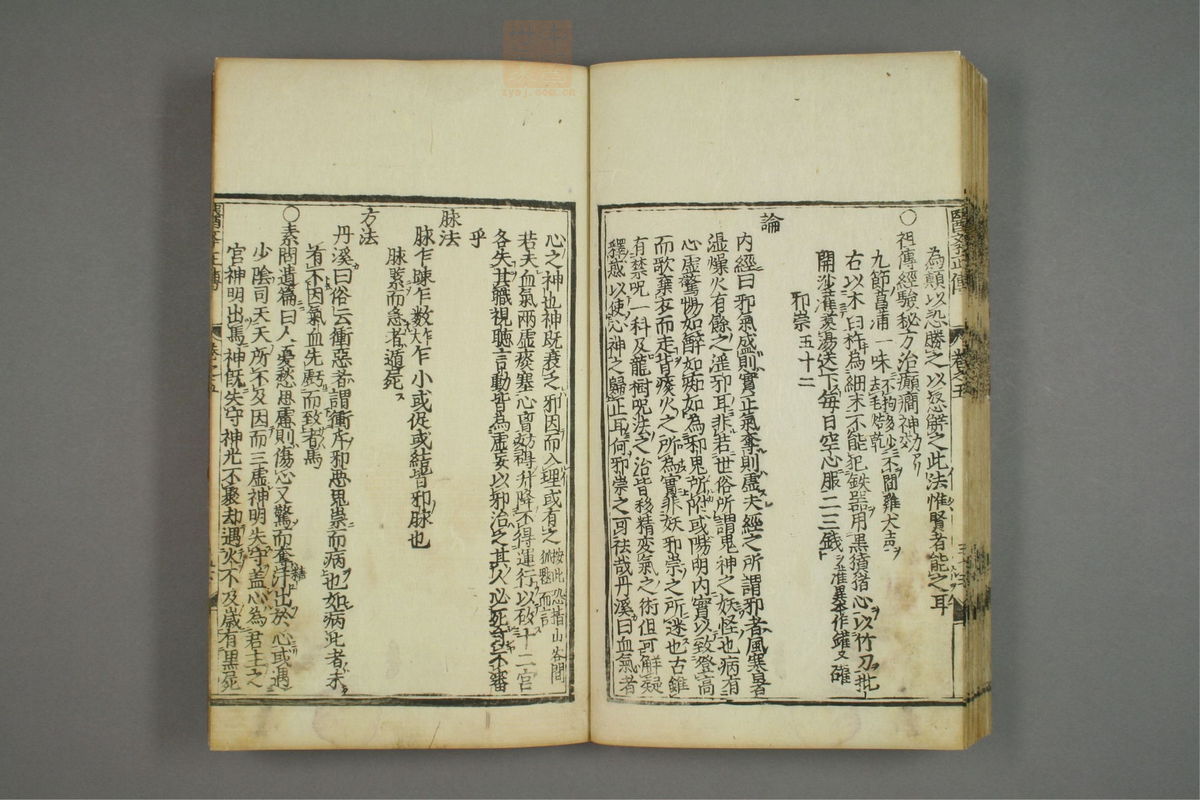 為顛以恐勝之以怒解之此法惟賢者能之耳
○祖傳經驗秘方治癲癇神効
九節菖蒲一味去毛焙乾不拘多少不聞雞犬吉
右以木臼杵為細末不能犯鉄器用黒豶猪心以竹刀批
開沙罐煑湯送下毎日空心服二三錢
邪祟五十二
論
内經曰邪氣盛則實正氣奪則虚夫經之所謂邪者風寒暑
湿燥火有餘之淫邪耳非若世俗所謂鬼神之妖怪也病有
心虚驚惕如醉如痴如為邪鬼所附或陽明内實以致登髙
而歌棄衣而走皆痰火之所為實非妖邪祟之所迷也古雖
有禁呪一科及龍樹呪法之治皆移精変氣之術但可解疑
釋惑以使心神之歸正耳何邪祟之可祛哉丹溪曰血氣者
心之神也神既衰乏邪因而入理或有之按此恐指山谷間狐魅而言
若夫血氣兩虚痰塞心胷妨碍升降不得運行以致十二官
各失其職視聽言動皆為虚妄以邪治之其人必死吁不審
乎
脉法
脉乍踈乍数乍大乍小或促或結皆邪脉也
脉緊而急者遁死
方法
丹溪曰俗云衝惡者謂衝斥邪悪鬼祟而病也如病此者未
有不因氣血先虧而致者焉
○素問遺篇曰人憂愁思慮則傷心又驚而奪汗出於心或遇
少陰司天天所不及因而三虚神明失守盖心為君主之
官神明出焉神既失守神光不聚却遇火不及歳有黒死